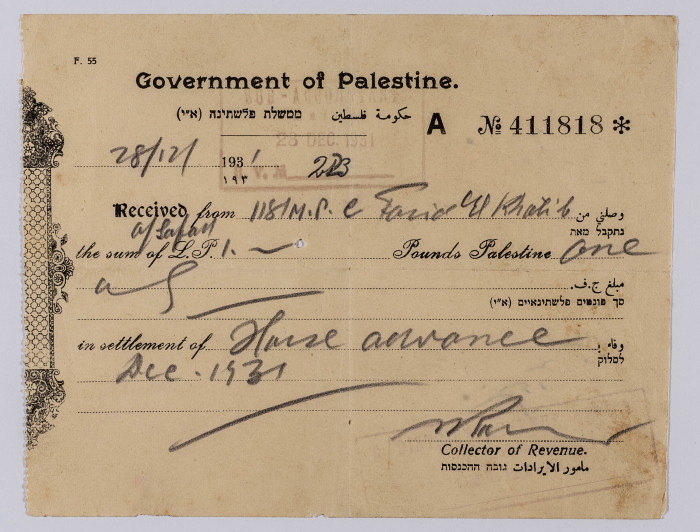 F. 55
Government of Palestine.
ממשלת פלשתינה (א״י) حكومة فلسطين
A № 411818 *
28 DEC. 1931
28/12/ 1931
١٩٣
Received from 1181 M.P.C Farid El Khatib وصلني من
of Safad נתקבל מאת
the sum of L.P. 1. — Pounds Palestine One
مبلغ ج.ف.
סך פונטים פלשתינאיים (א״י)
in settlement of Horse advance وفاء
Dec. 1931 לסלוק
Collector of Revenue.
مأمور الايرادات גובה ההכנסות